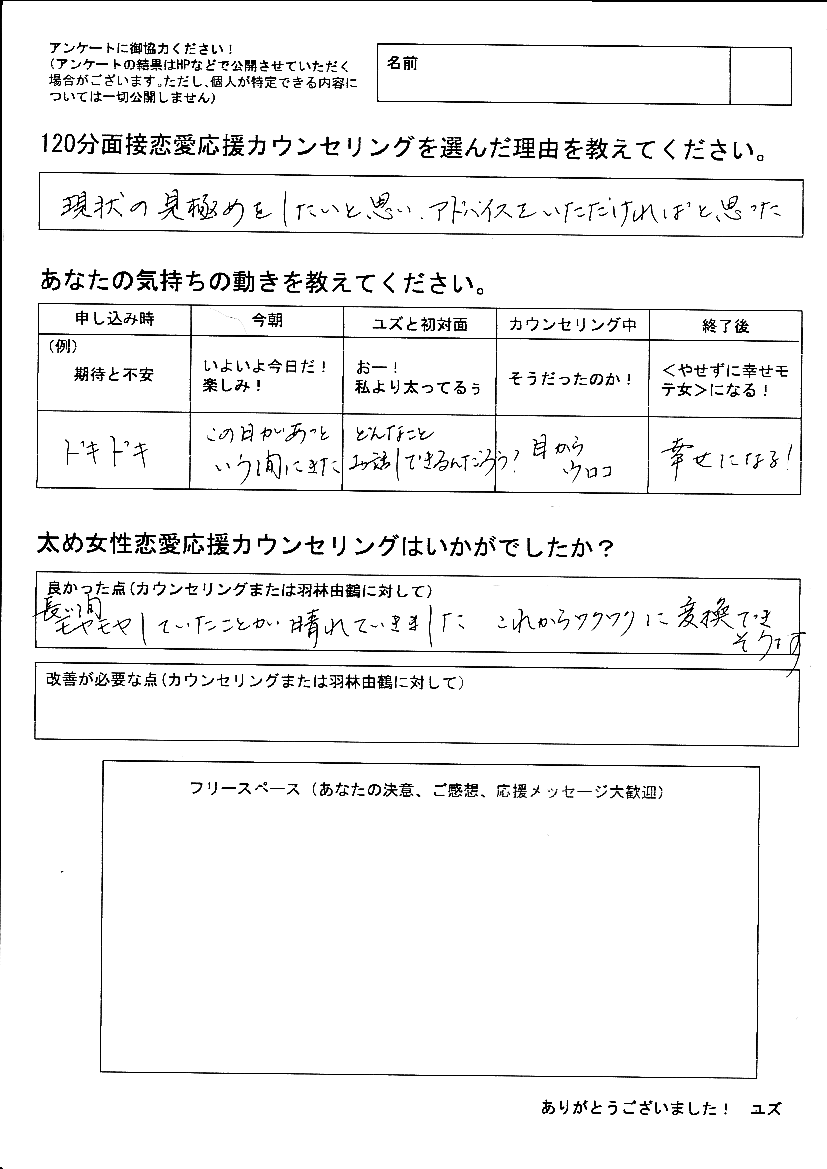 アンケートに御協力ください！
（アンケートの結果はHPなどで公開させていただく
場合がございます。ただし、個人が特定できる内容に
ついては一切公開しません）
名前
120分面接恋愛応援カウンセリングを選んだ理由を教えてください。
現状の見極めをしたいと思い、アドバイスをいただければと思った
あなたの気持ちの動きを教えてください。
申し込み時 今朝 ユズと初対面 カウンセリング中 終了後
（例）
期待と不安
いよいよ今日だ！
楽しみ！
おー！
私より太ってるぅ
そうだったのか！
＜やせずに幸せモ
テ女＞になる！
ドキドキ
この日があっと
いう間にきた
どんなこと
お話しできるんだろう？
目から
ウロコ
幸せになる！
太め女性恋愛応援カウンセリングはいかがでしたか？
良かった点（カウンセリングまたは羽林由鶴に対して）
長い間
モヤモヤしていたことが晴れていきました これからワクワクに変換でき
そうです
改善が必要な点（カウンセリングまたは羽林由鶴に対して）
フリースペース（あなたの決意、ご感想、応援メッセージ大歓迎）
ありがとうございました！ ユズ